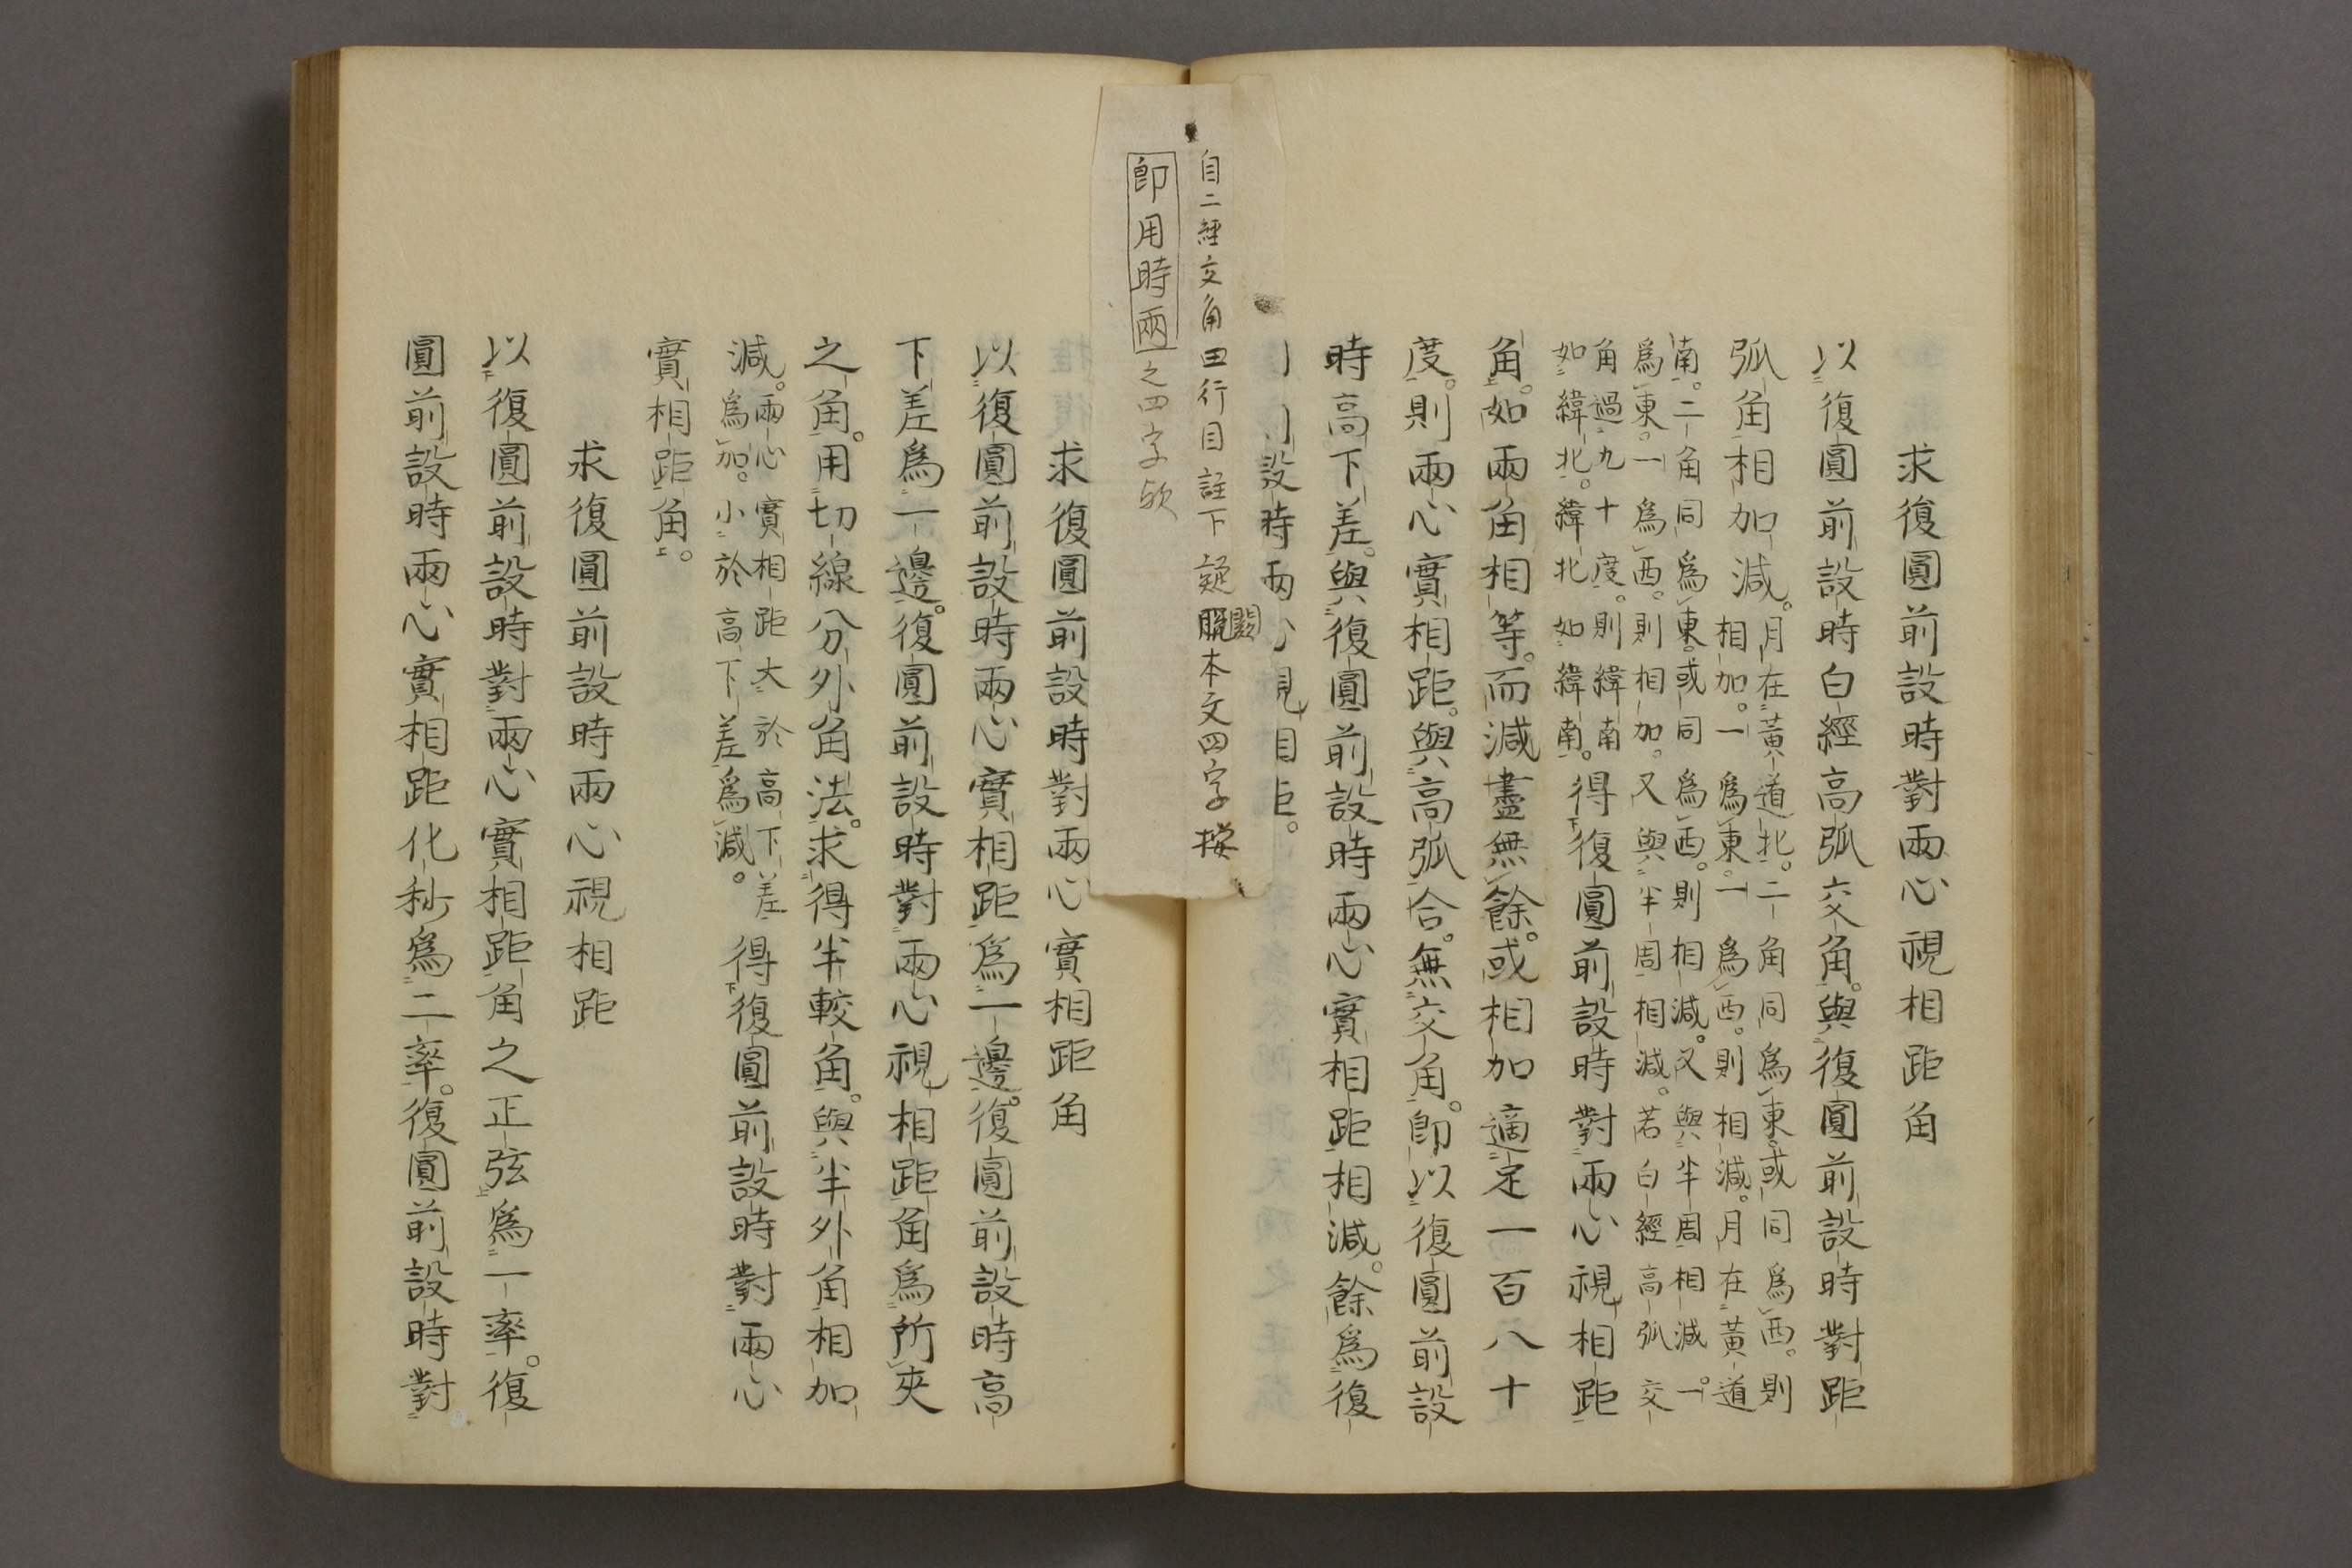 求復圓前設時對兩心視相距角
以復圓前設時白經高弧交角。與復圓前設時對距
弧角相加減。
月在黃道北。二角同爲東。或同爲西。則
相加。一爲東。一爲西。則相減。月在黃道
南。二角同爲東。或同爲西。則相減。又與半周相減。一
爲東。一爲西。則相加。又與半周相減。若白經高弧交
角過九十度。則緯南
如緯北。緯北如緯南。
得復圓前設時對兩心視相距
角。如兩角相等。而減盡無餘。或相加適足一百八十
度。則兩心實相距。與高弧合。無交角。即以復圓前設
時高下差。與復圓前設時兩心實相距相減。餘爲復
設時兩
自二經交角田行目註下疑脫本文四字按
闕
即用時兩之四字欤
求復圓前設時對兩心實相距角
以復圓前設時兩心實相距爲一邊。復圓前設時高
下差爲一邊。復圓前設時對兩心視相距角爲所夾
之角。用切線分外角法。求得半較角。與半外角相加
減。
兩心實相距大於高下差
爲加。小於高下差爲減。
得復圓前設時對兩心
實相距角。
求復圓前設時兩心視相距
以復圓前設時對兩心實相距角之正弦爲一率。復
圓前設時兩心實相距化秒爲二率。復圓前設時對